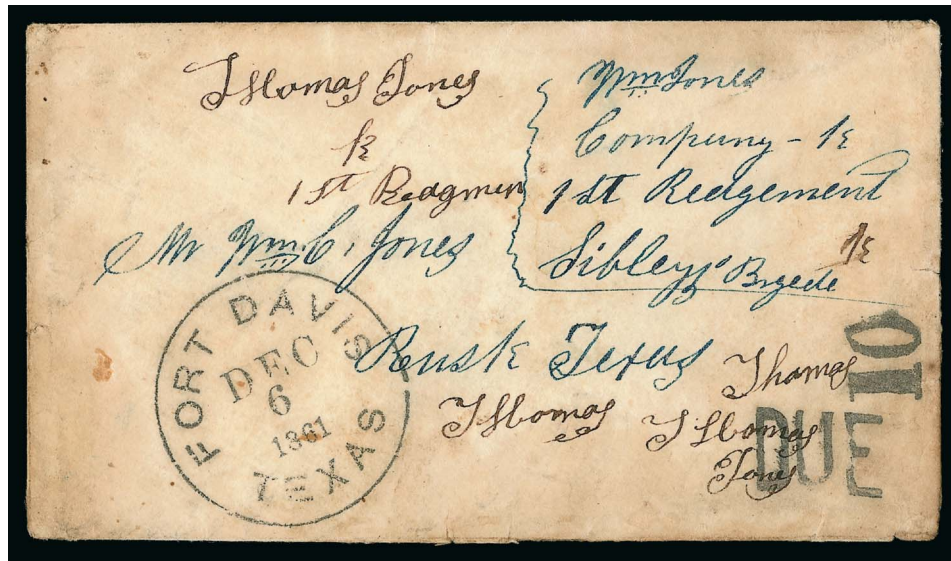 Thomas Jones
k
1st Redgmen
Mr Wm. C. Jones
Wm Jones
Company - k
1st Redgement
Sibleys Brgede
k
Rusk Texas
FORT DAVIS
DEC
6
1861
TEXAS
Thomas
Thomas
Thomas
Jones
DUE 10